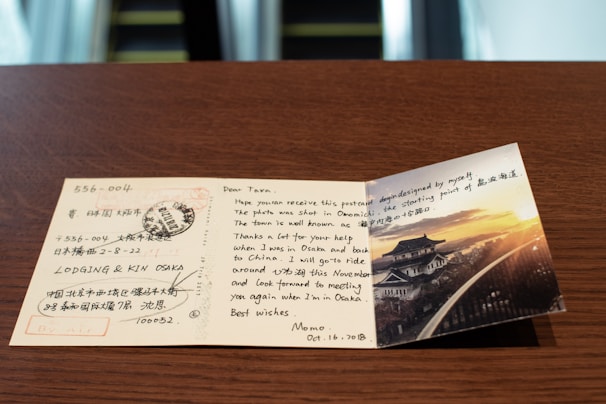 556-004
日本国 大阪市
〒556-004 大阪市浪速区
日本橋西 2-8-22
LODGING & KIN OSAKA
中国 北京市西城区
7层 沈思
100052
Dear Tara.
Hope you can receive this postcard designed by myself
The photo was shot in Onomichi, the starting point of 島波海道.
The town is well known as 瀬戸内海の十字路口.
Thanks a lot for your help
when I was in Osaka and back
to China. I will go to ride
around びわ湖 this November
and look forward to meeting
you again when I'm in Osaka.
Best wishes.
Momo.
Oct. 16. 2018.